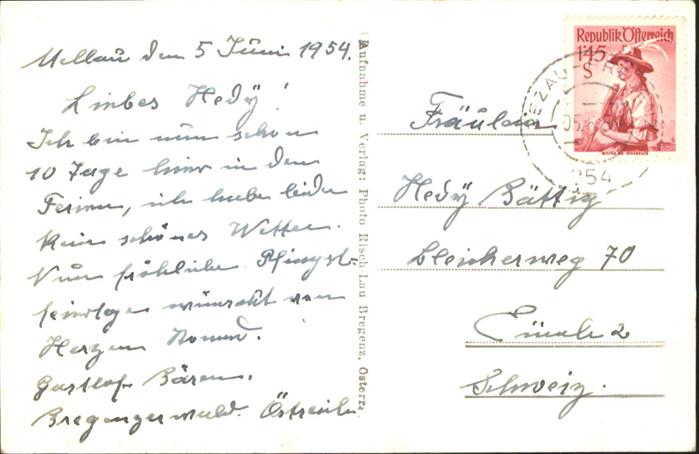 Mellau den 5 Juni 1954.
Liebes Hedy!
Ich bin nun schon
10 Tage hier in den
Ferien, ich habe leider
kein schönes Wetter.
Nun fröhliche Pfingst-
feiertage wünscht von
Herzen
Gasthof Bären.
Bregenzerwald. Östreich
Aufnahme u. Verlag: Photo Risch Lau Bregenz, Österr.
Republik Österreich
1'45
S
BEZAU
05.6
254
Fräulein
Hedy Bättig
Bleicherweg 70
Zürich 2
Schweiz.